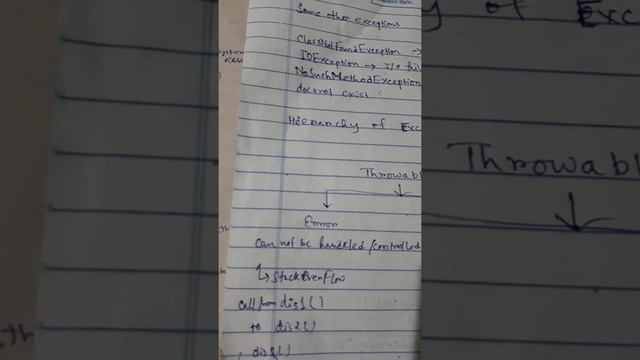 Some other exceptions
ClassNotFoundException →
IOException →
NoSuchMethodException
does not exist
Hierarchy of Exc
Throwabl
Error
Can not be handled/controlled
↳ StackOverFlow
call from dis1()
to dis2()
dis2()
y of Exc
Throwabl